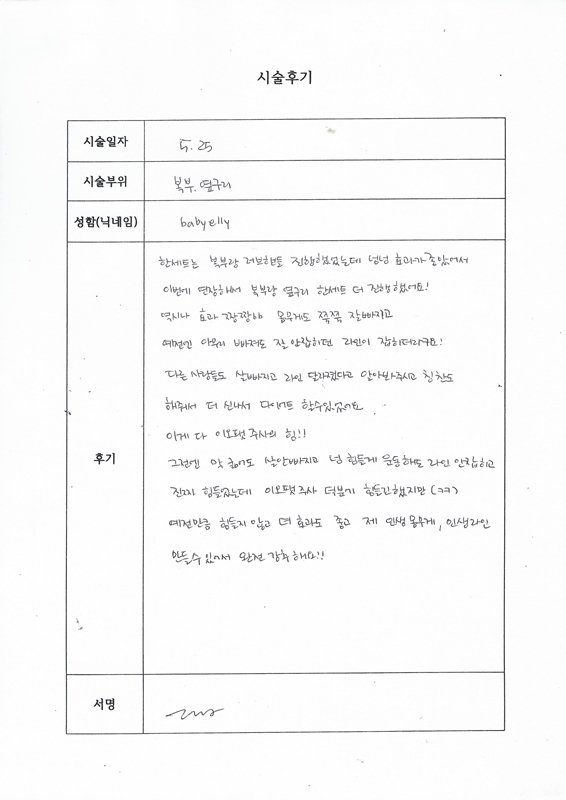 시술후기
시술일자 5. 25
시술부위 복부. 옆구리
성함(닉네임) babyelly
후기
한세트는 복부랑 러브핸들 진행했었는데 넘넘 효과가 좋았어서
이번에 연장하여 복부랑 옆구리 한세트 더 진행했어요!
역시나 효과 짱짱하 몸무게도 쭉쭉 잘빠지고
예전엔 아무리 빠져도 잘 안잡히던 라인이 잡히더라구요!
다른 사람들도 살빠지고 라인 달라졌다고 알아봐주시고 칭찬도
해줘서 더 신나서 다이어트 할수있었어요
이게 다 이오팻 주사의 힘!!
그전엔 막 굶어도 살안빠지고 넘 힘들게 운동해도 라인 안잡히고
진짜 힘들었는데 이오팻주사 덕분에 힘들긴했지만 (ㅋㅋ)
예전만큼 힘들지 않고 더 효과도 좋고 제 인생몸무게, 인생라인
만들수있어서 완전 강추해요!!
서명